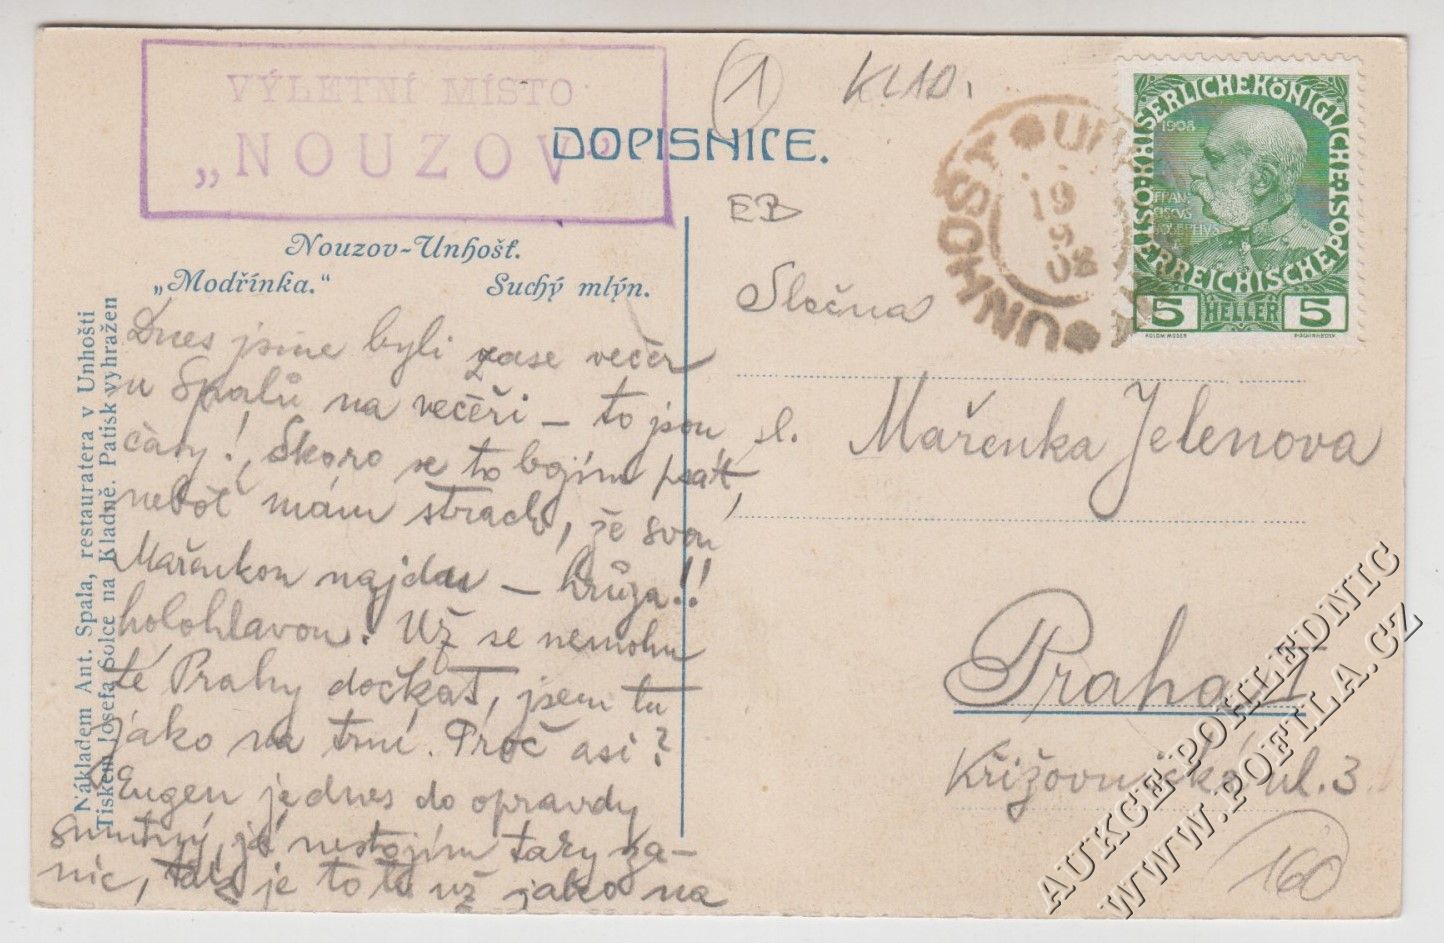 VÝLETNÍ MÍSTO
„NOUZOV"
1
KLAD.
DOPISNICE.
EB
Nouzov-Unhošť.
„Modřínka."
Suchý mlýn.
Nákladem Ant. Spala, restauratera v Unhošti
Tiskem Josefa Šolce na Kladně. Patisk vyhražen
Dnes jsme byli zase večer
u Spalů na večeři – to jsou
časy! Skoro se to bojím psát,
neboť mám strach, že svou
Mařenkou najdu – hrůza!!
holohlavou. Už se nemohu
té Prahy dočkat, jsem tu
jako na trní. Proč asi?
Eugen je dnes do opravdy
smutný, já nestojím taky za-
nic, je to tu už jako na
UNHOŠŤ
19
08
KAISERLICHE KÖNIGLICHE
ÖSTERREICHISCHE POST
1908
FRAN-
CISCVS
IOSEPHVS
5 HELLER 5
KOLOM. MOSER
F. SCHIRNBÖCK
Slečna
sl. Mařenka Jelenova
Praha I
Křižovnická ul. 3.
160
AUKCE POHLEDNIC
WWW.POFILA.CZ